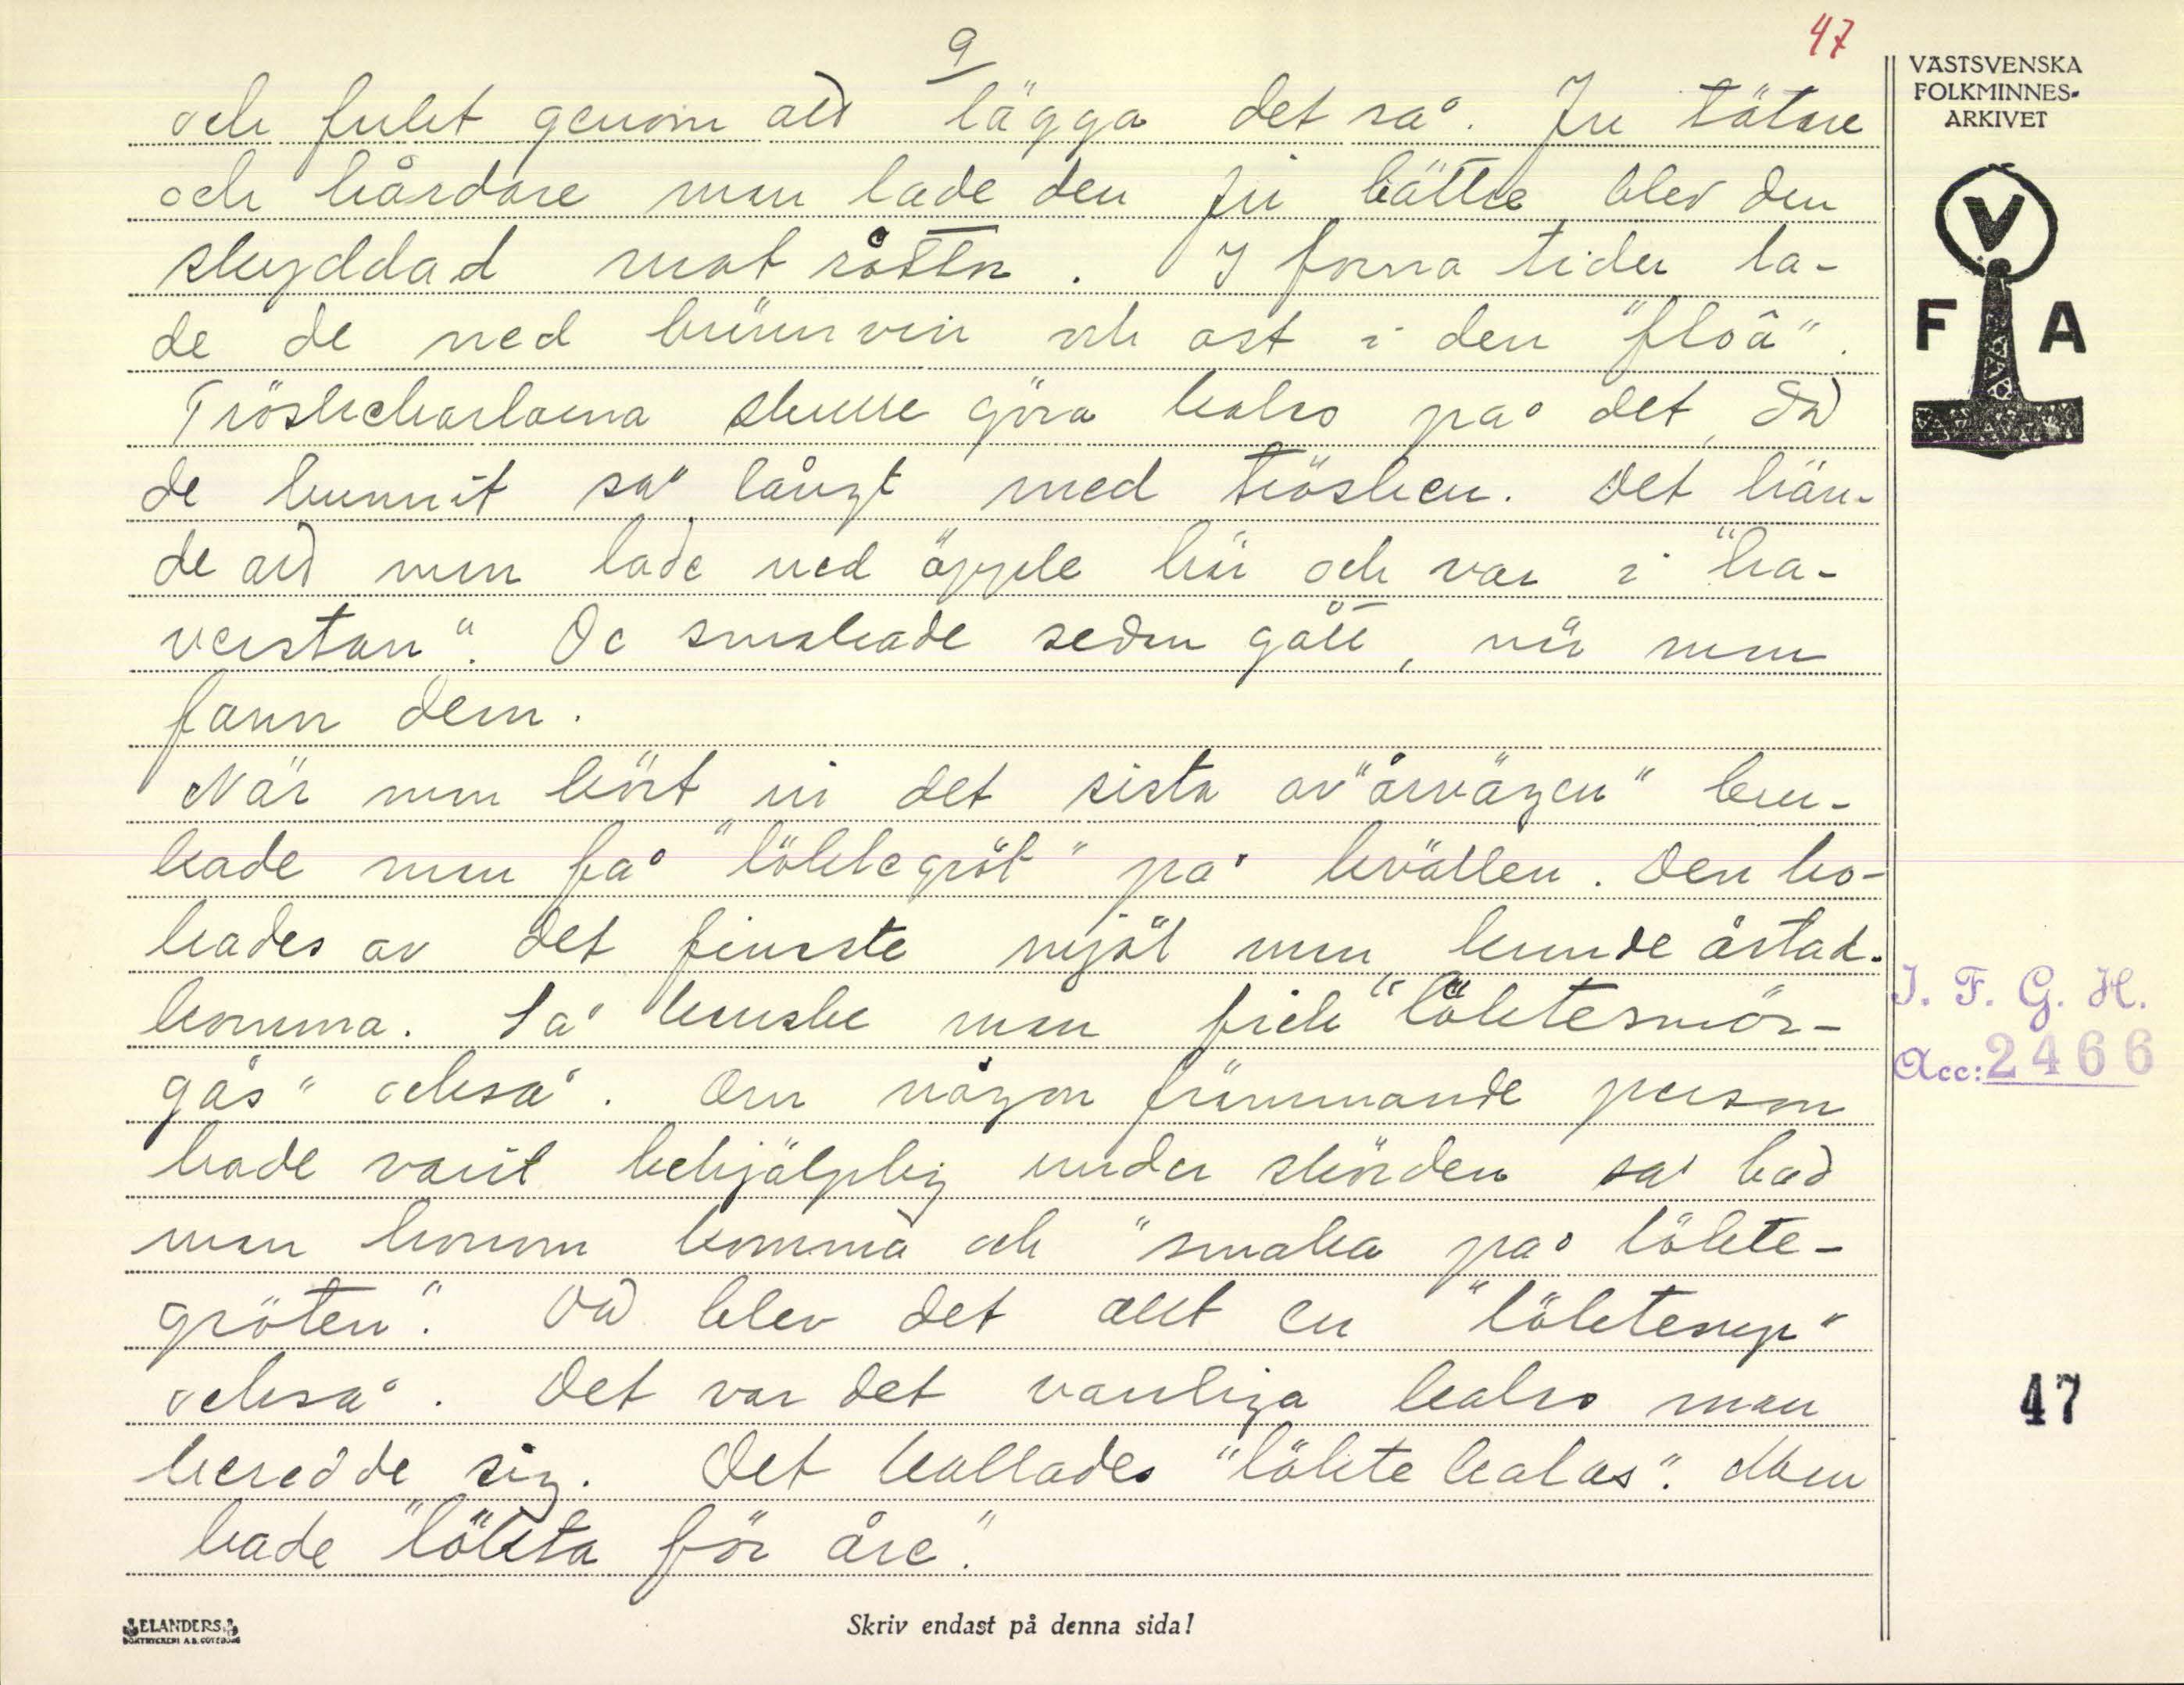 9
47
och fullt genom att lägga det så. Ju tätare
och hårdare man lade den ju bättre blev den
skyddad mot råttor. I forna tider la-
de de ned brännvin och ost i den "floå".
Tröskekarlarna skulle göra kalas på det, då
de hunnit så långt med trösken. Det hän-
de att man lade ned äpple här och var i "ha-
verstan". De smakade sedan gott, när man
fann dem.
När man kört in det sista av "årvägen" bru-
kade man få "löktegröt" på kvällen. Den ko-
kades av det finaste mjöl man kunde åstad-
komma. Så kanske man fick "löktesmör-
gås" också. Om någon främmande person
hade varit behjälplig under skörden så bad
man honom komma och "smaka på lökte-
gröten". Då blev det allt en "löktesup"
också. Det var det vanliga kalas man
beredde sig. Det kallades "löktekalas". Man
hade "lökta för åre".
VÄSTSVENSKA
FOLKMINNES-
ARKIVET
V
F A
I. F. G. H.
Acc: 2466
47
ELANDERS
BOKTRYCKERI A.B. GÖTEBORG
Skriv endast på denna sida!